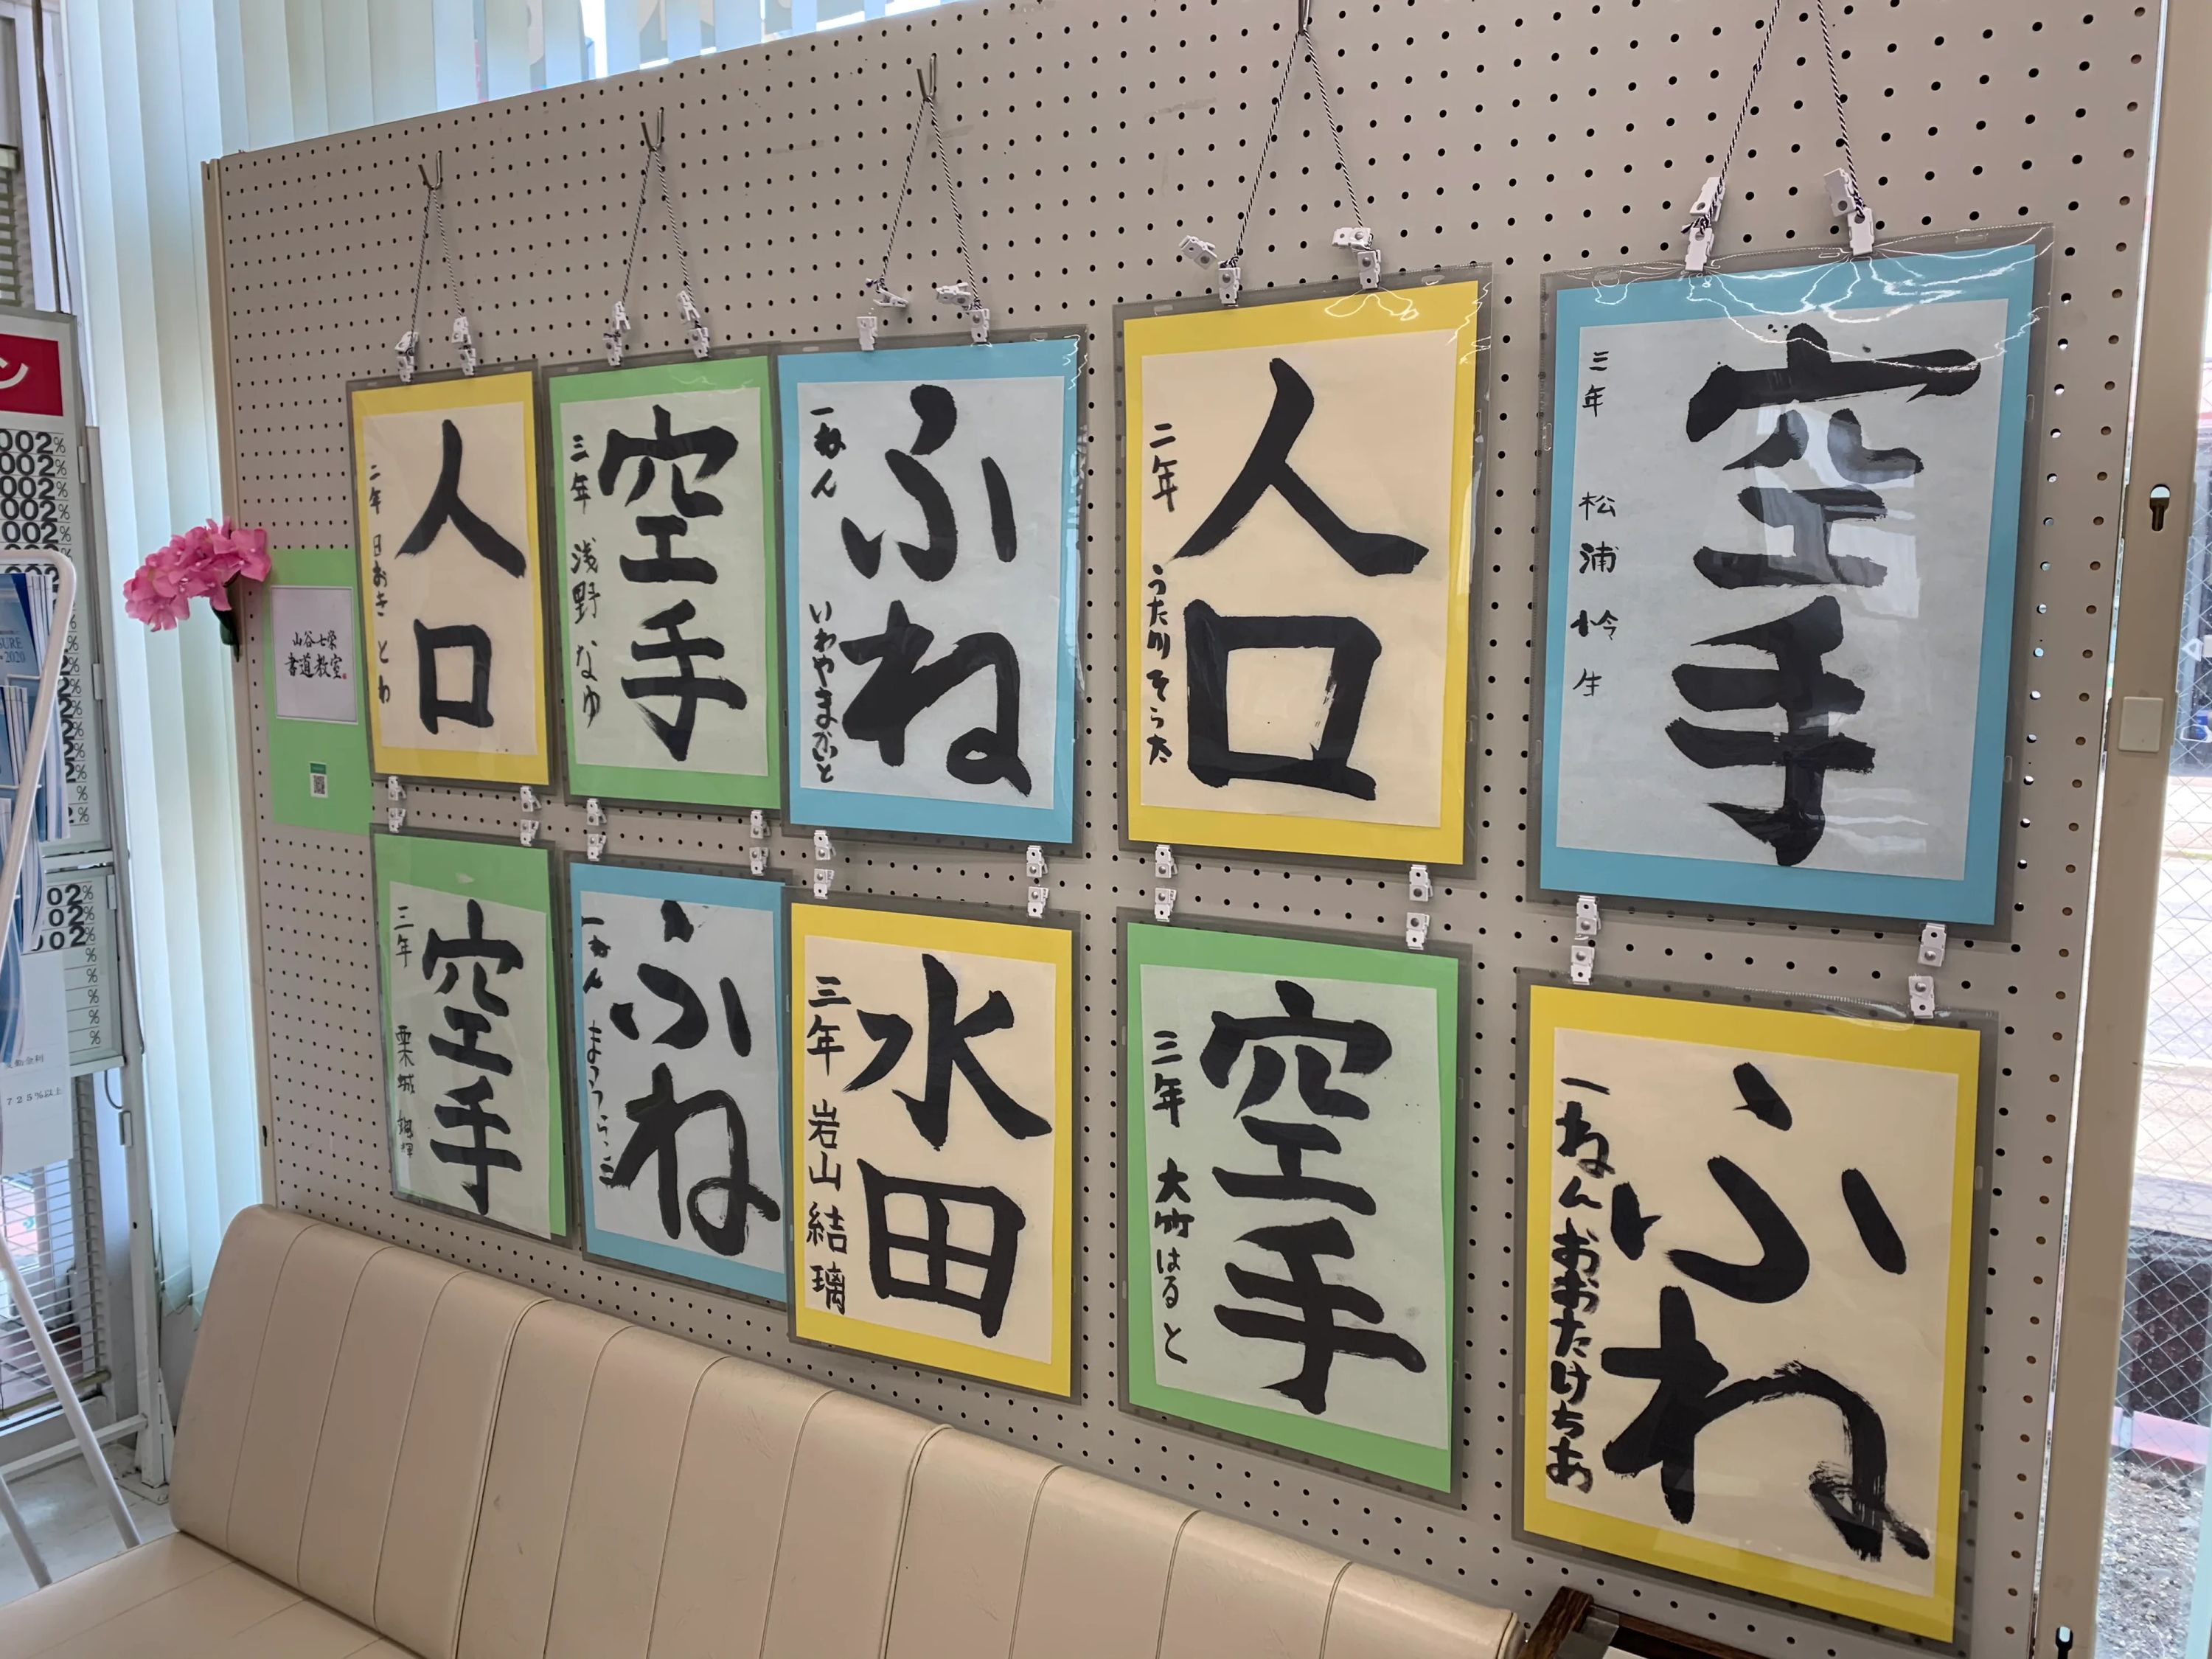 ン
002%
002%
002%
002%
002%
725%以上
山谷七栄
書道教室
人口
二年 日おき とわ
空手
三年 浅野 なゆ
ふね
一ねん いわやままさと
人口
二年 うた川 そう太
空手
三年 松浦 怜生
空手
三年 栗城
ふね
一ねん まつうら
水田
三年 岩山結璃
空手
三年 大竹はると
ふね
一ねん おおたけちあ